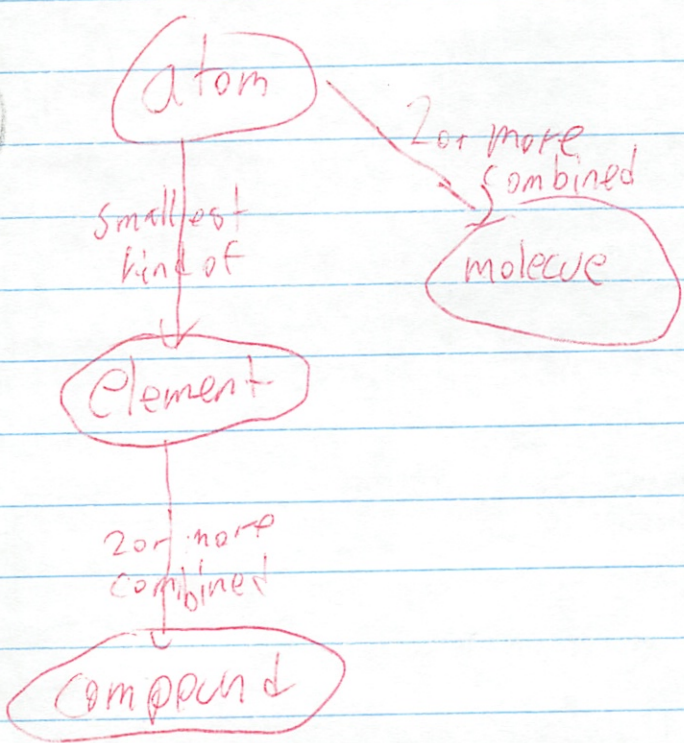 atom
2 or more
combined
smallest
kind of
molecue
element
2 or more
combined
compound